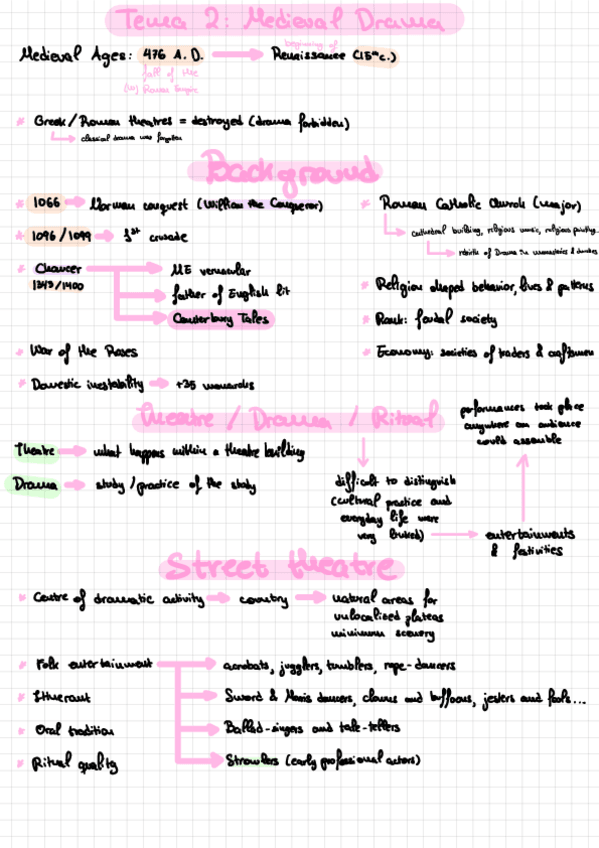 Tema 2: Medieval Drama
Medieval Ages: 476 A.D. → beginning of Renaissance (15th c.)
fall of the
(W) Roman Empire
* Greek/Roman theatres = destroyed (drama forbidden)
classical drama was forgotten
Background
* 1066 → Norman conquest (William the Conqueror)
* 1096/1099 → 1st crusade
* Chaucer
1343/1400
→ ME vernacular
→ father of English lit
→ Canterbury Tales
* War of the Roses
* Domestic inestability → +35 monarchs
* Roman Catholic Church (major)
cathedral building, religious music, religious painting...
rebirth of Drama in monasteries & churches
* Religion shaped behavior, lives & patterns
* Rank: feudal society
* Economy: societies of traders & craftsmen
Theatre / Drama / Ritual
Theatre → what happens within a theatre building
Drama → study/practice of the study
difficult to distinguish
(cultural practice and
everyday life were
very linked)
→ entertainments
& festivities
performances took place
anywhere an audience
could assemble
Street theatre
* Centre of dramatic activity → country → natural areas for
unlocalised plateas
minimum scenery
* Folk entertainment
* Itinerant
* Oral tradition
* Ritual quality
→ acrobats, jugglers, tumblers, rope-dancers
→ Sword & Morris dancers, clowns and buffoons, jesters and fools...
→ Ballad-singers and tale-tellers
→ Strowlers (early professional actors)